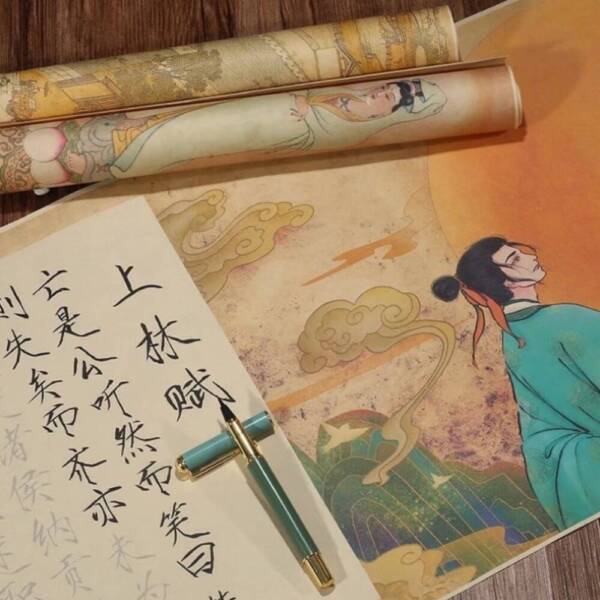 上林赋
亡是公听然而笑曰
则失矣而齐亦未为
诸侯纳贡
述职